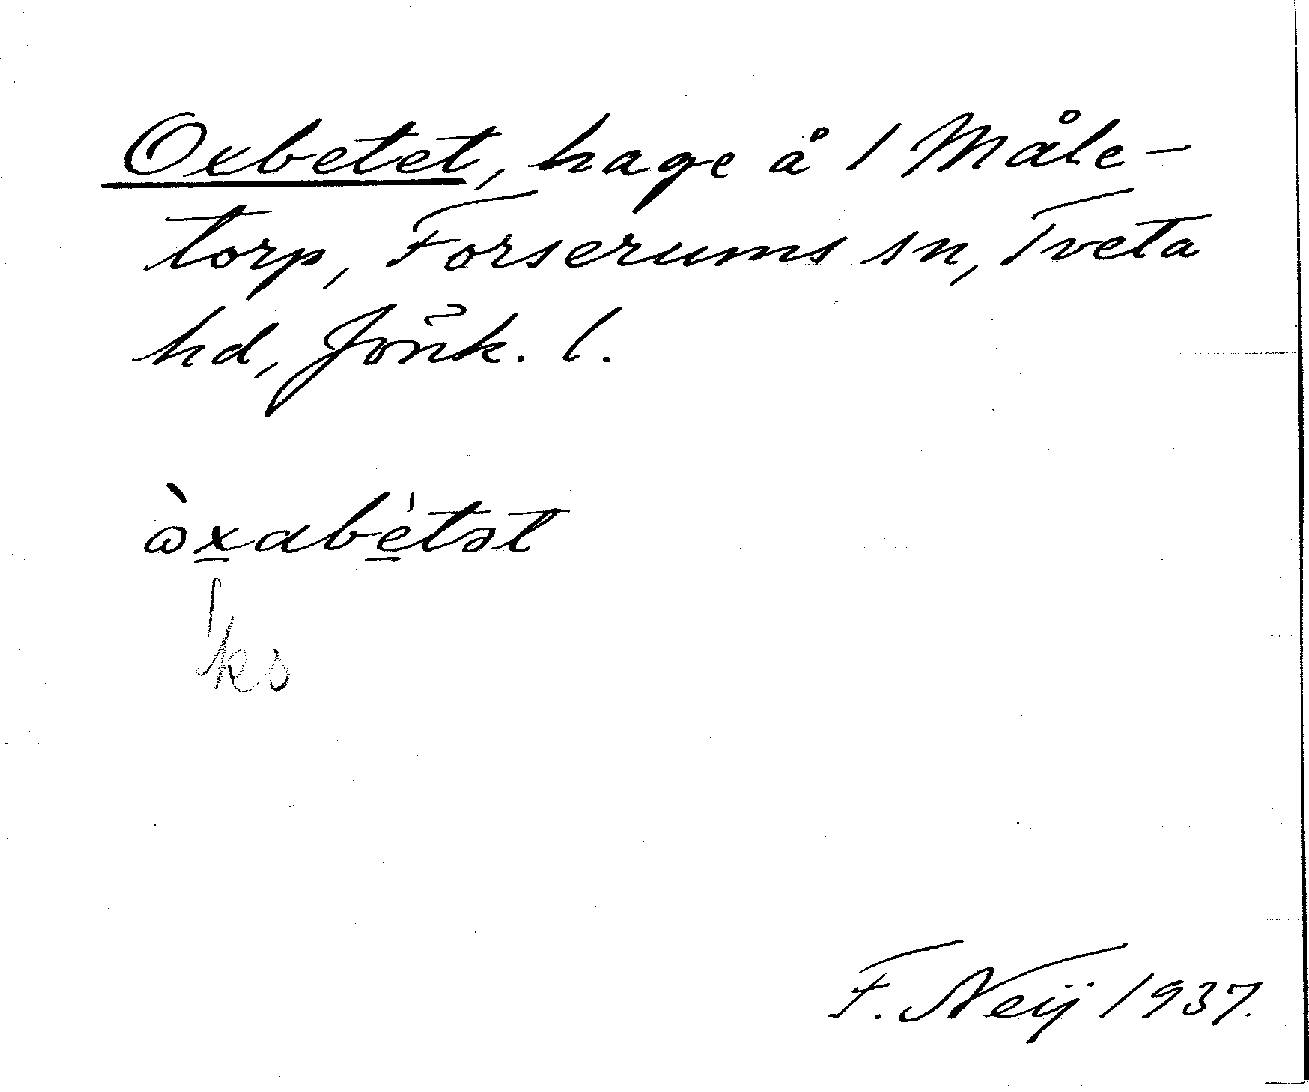 Oxbetet, hage å 1 Måle-
torp, Forserums sn, Tveta
hd, Jönk. l.
òxabétət
ks
F. Neij 1937.